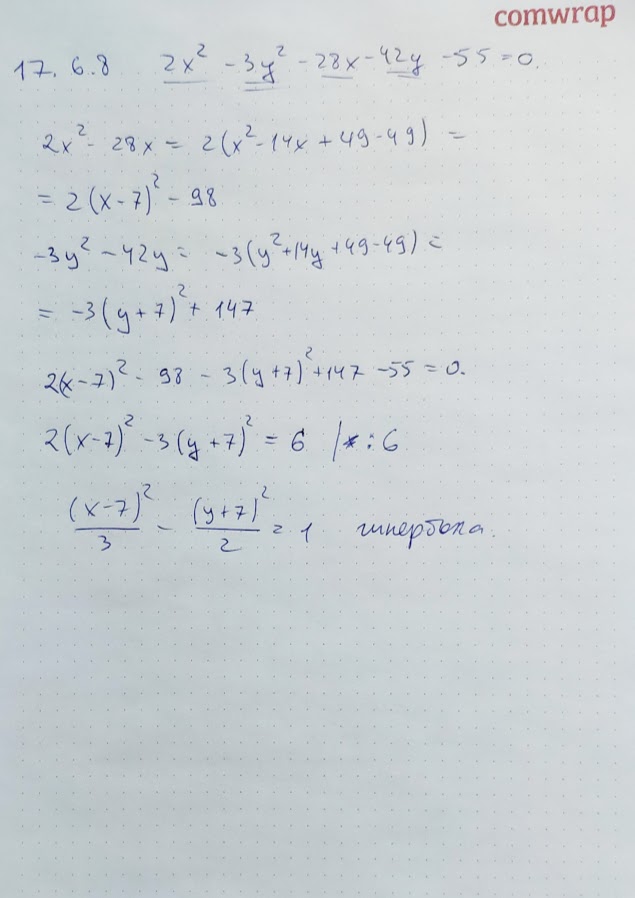 comwrap
17. 6.8 2x² - 3y² - 28x - 42y - 55 = 0.
2x² - 28x = 2(x² - 14x + 49 - 49) =
= 2(x - 7)² - 98
-3y² - 42y = -3(y² + 14y + 49 - 49) =
= -3(y + 7)² + 147
2(x - 7)² - 98 - 3(y + 7)² + 147 - 55 = 0.
2(x - 7)² - 3(y + 7)² = 6 | : 6
(x - 7)²/3 - (y + 7)²/2 = 1 гипербола.